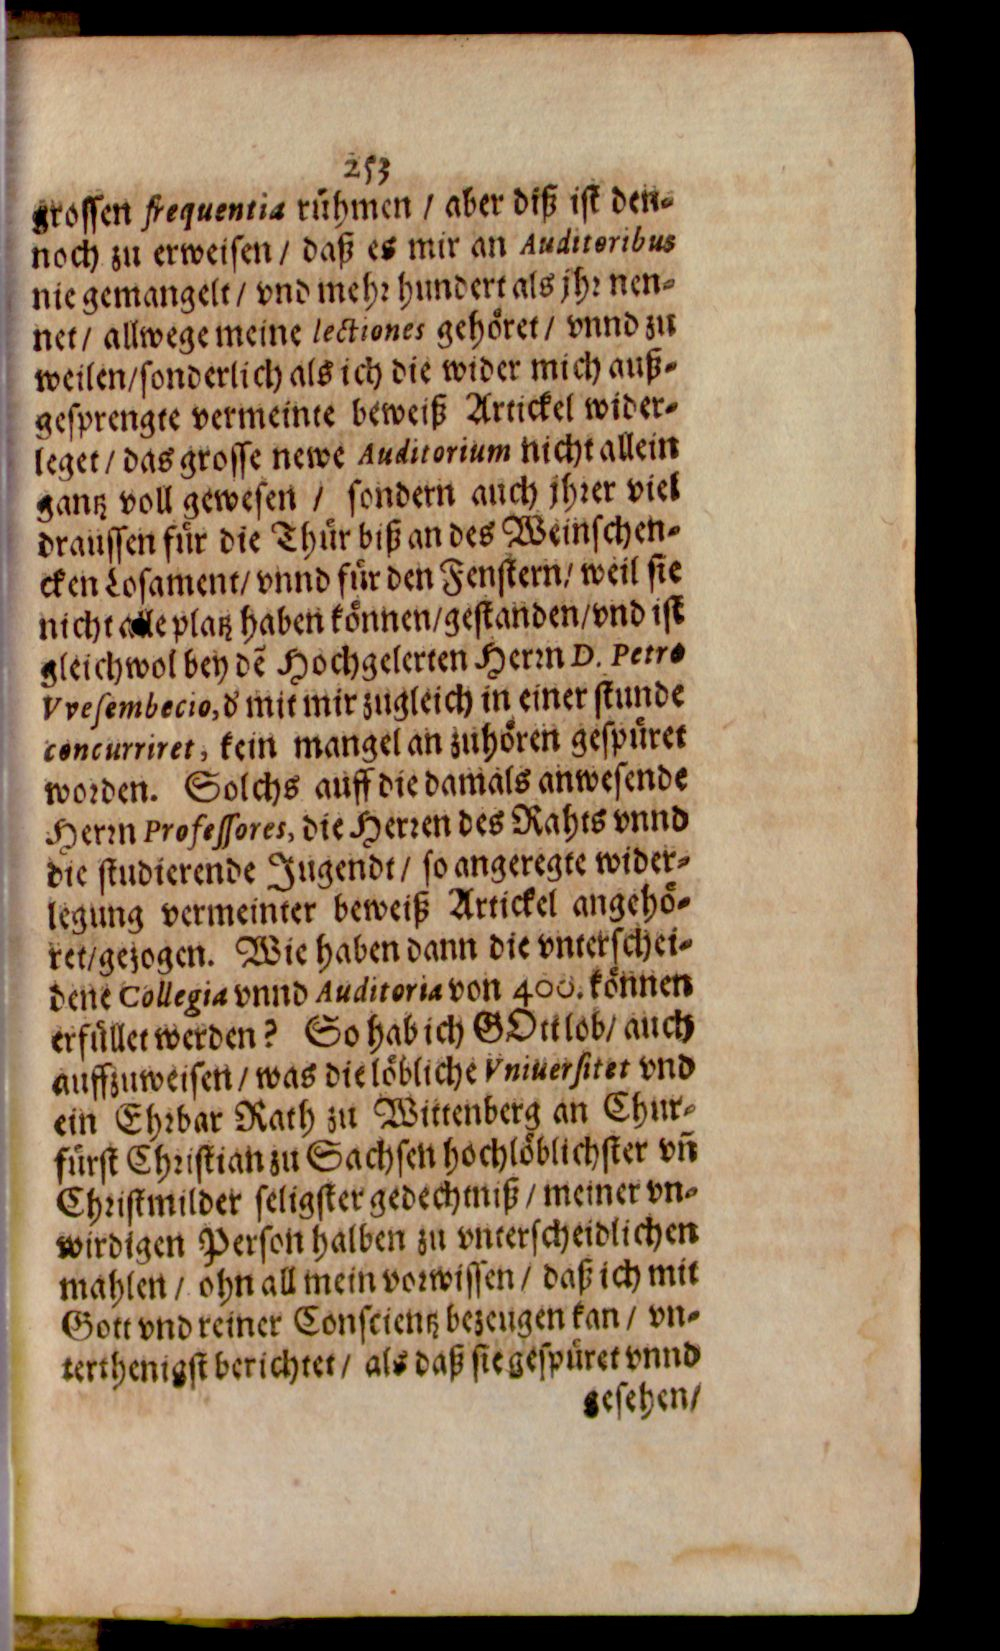 253
grossen frequentia rühmen / aber diß ist den-
noch zu erweisen / daß es mir an Auditoribus
nie gemangelt / vnd mehr hundert als jhr nen-
net / allwege meine lectiones gehöret / vnnd zu
weilen / sonderlich als ich die wider mich auß-
gesprengte vermeinte beweiß Artickel wider-
leget / das grosse newe Auditorium nicht allein
gantz voll gewesen / sondern auch jhrer viel
draussen für die Thür biß an des Weinschen-
cken Losament / vnnd für den Fenstern / weil sie
nicht alle platz haben können / gestanden / vnd ist
gleichwol bey dẽ Hochgelerten Herrn D. Petro
Vvesembecio, d' mit mir zugleich in einer stunde
concurriret, kein mangel an zuhören gespüret
worden. Solchs auff die damals anwesende
Herrn Professores, die Herren des Rahts vnnd
die studierende Jugendt / so angeregte wider-
legung vermeinter beweiß Artickel angehö-
ret / gezogen. Wie haben dann die vnterschei-
dene Collegia vnnd Auditoria von 400. können
erfüllet werden? So hab ich GOtt lob / auch
auffzuweisen / was die löbliche Vniuersitet vnd
ein Ehrbar Rath zu Wittenberg an Chur-
fürst Christian zu Sachsen hochlöblichster vñ
Christmilder seligster gedechtniß / meiner vn-
wirdigen Person halben zu vnterscheidlichen
mahlen / ohn all mein vorwissen / daß ich mit
Gott vnd reiner Conscientz bezeugen kan / vn-
terthenigst berichtet / als daß sie gespüret vnnd
gesehen /